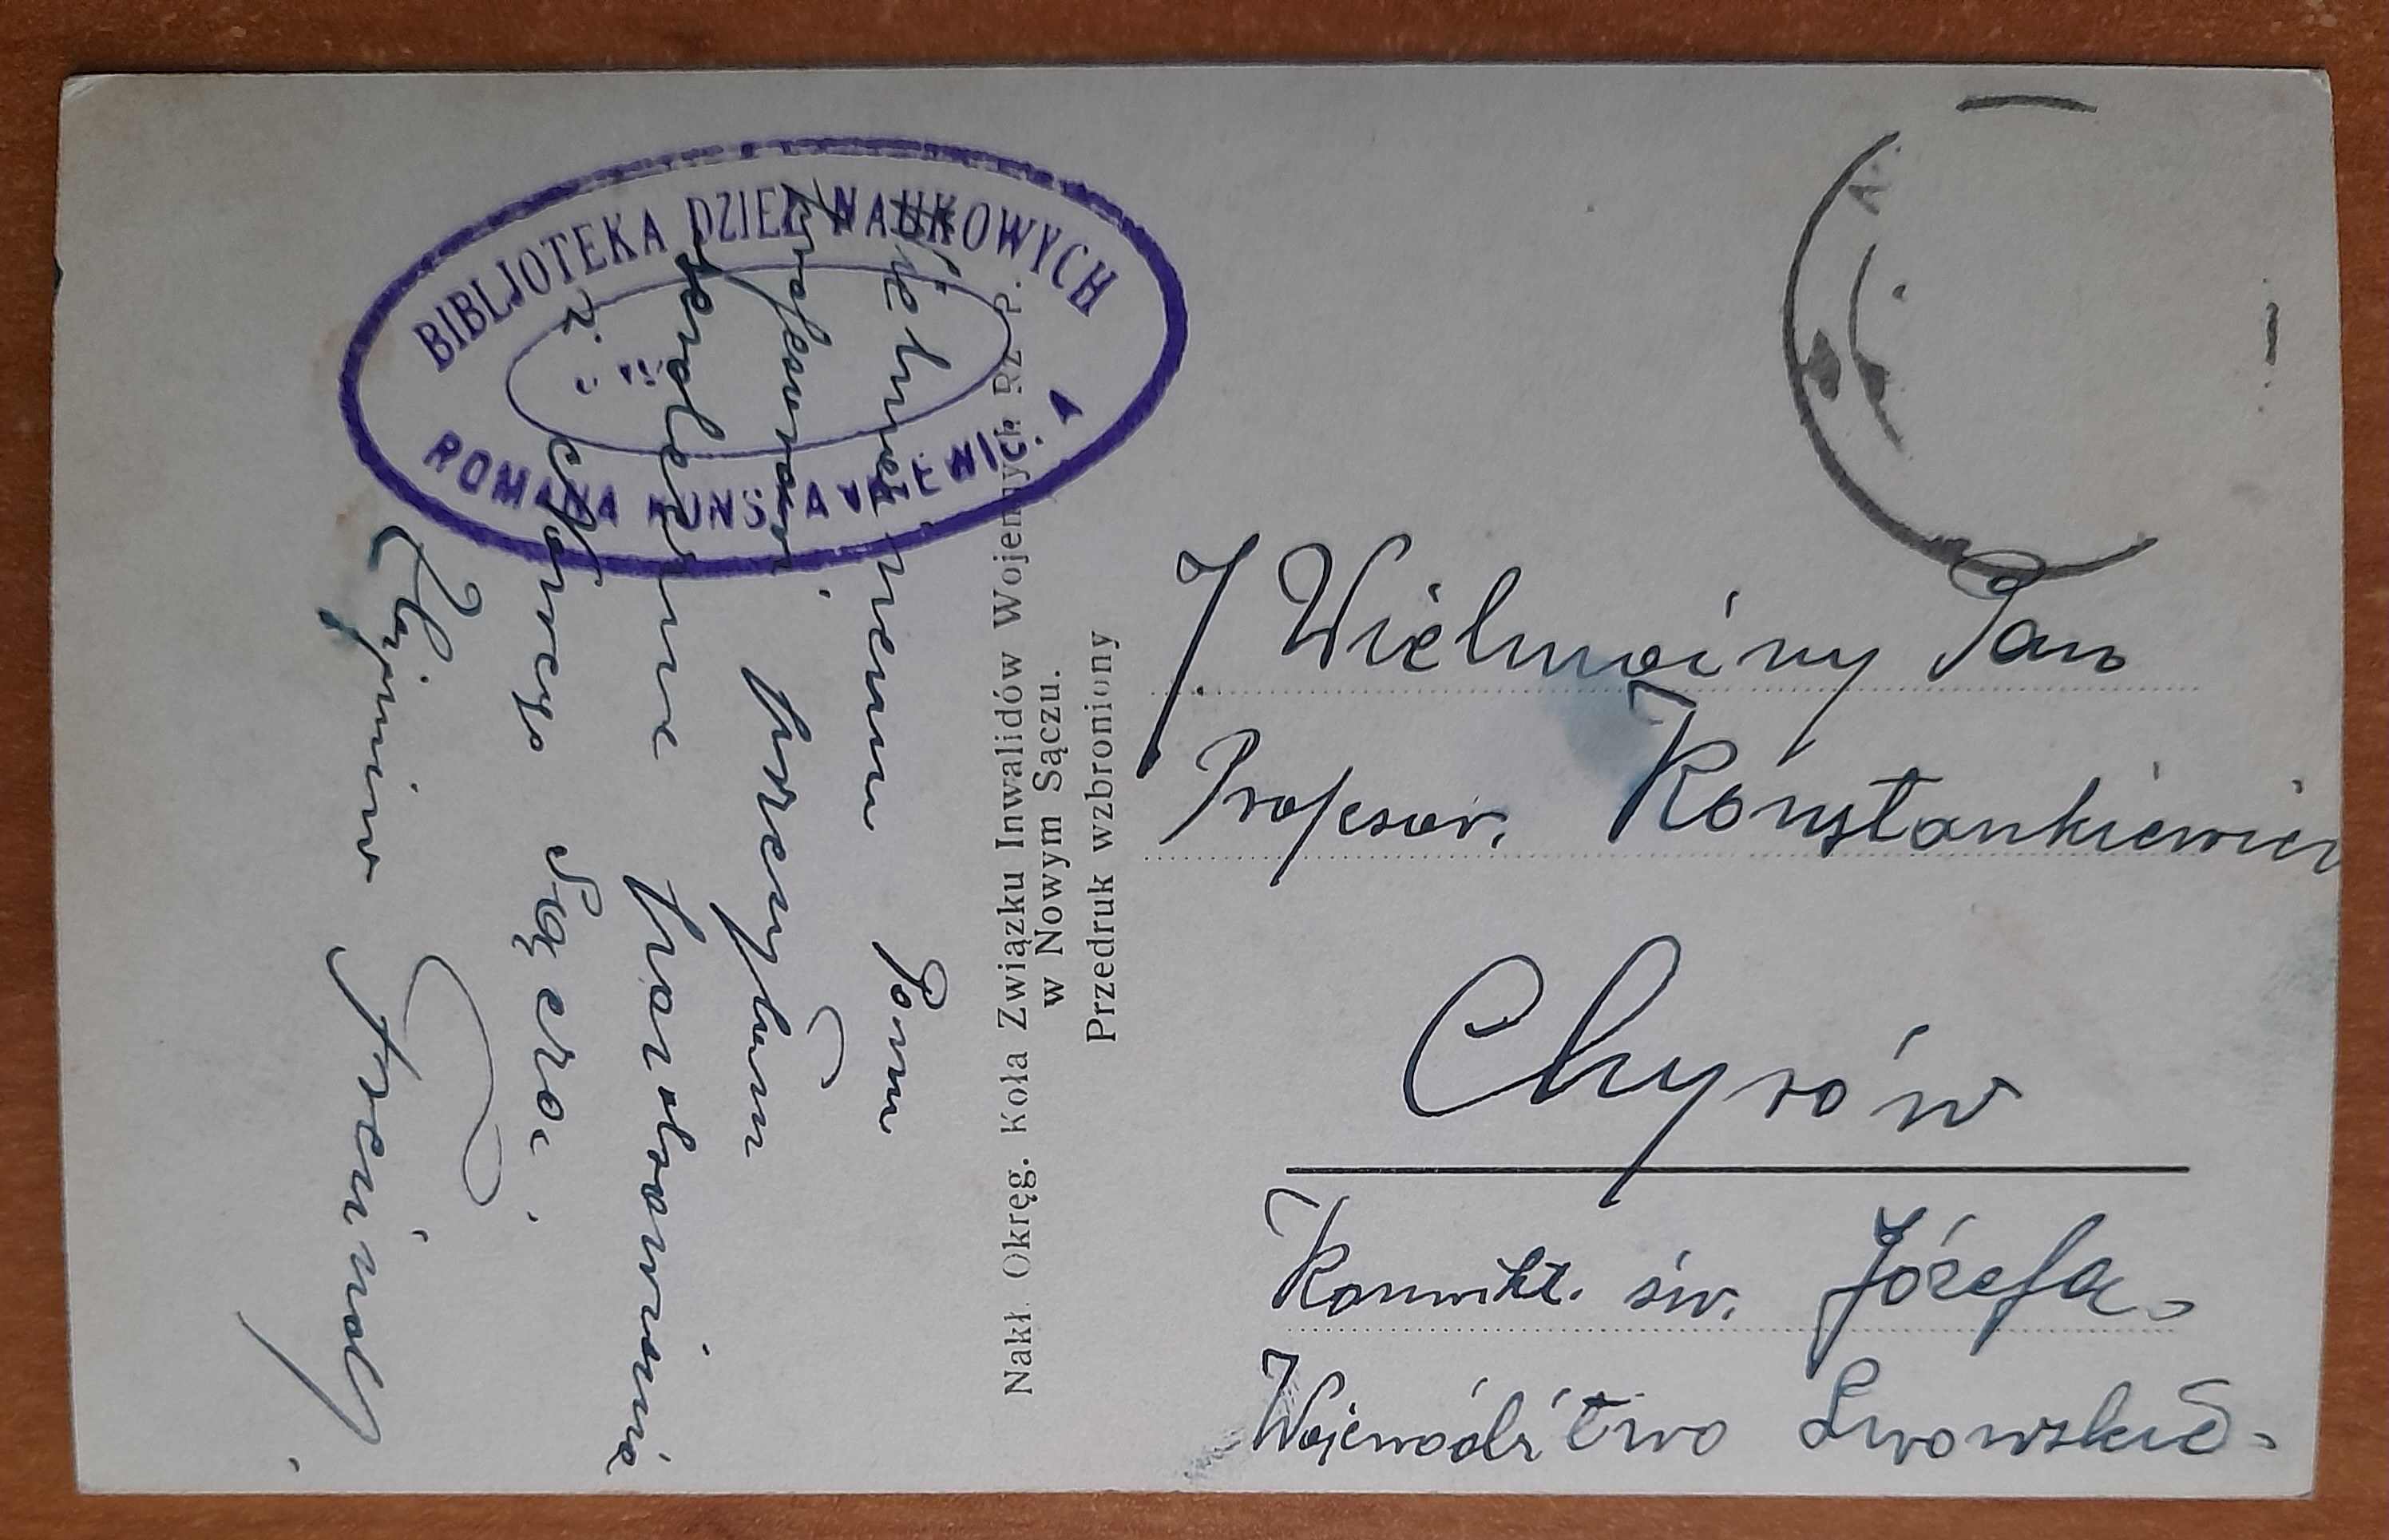 BIBLJOTEKA DZIEŁ NAUKOWYCH
ROMANA KONSTANKIEWICZA
Wielmożnemu Panu
Profesorowi przesyłam
serdeczne pozdrowienia
z Starego Sącza.
Zbigniew
Nakł. Okręg. Koła Związku Inwalidów Wojennych Rz P.
w Nowym Sączu.
Przedruk wzbroniony
J Wielmożny Pan
Profesor. Konstankiewicz
Chyrów
Konwikt. św. Józefa.
Województwo Lwowskie.